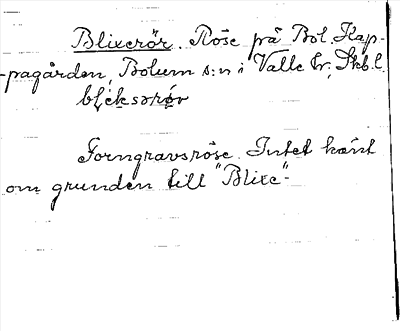 Blixerör. Röse på Bol. Klap-
-pagården, Bolum s:n i Valle hr, Skbl.
bl̯ɩksərør
Forngravsröse. Intet känt
om grunden till "Blixe"-